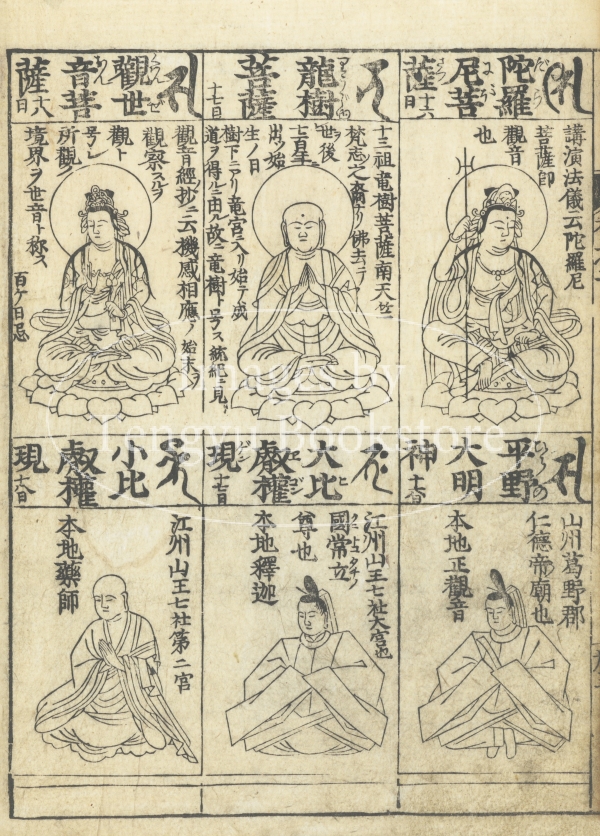 陀羅
尼菩
薩
十六日
講演法儀云陀羅尼
菩薩即
觀音
也
龍樹
菩薩
十七日
十三祖竜樹菩薩南天竺
梵志之裔ナリ佛去テ
世後
七百年
出ツ始
生ノ日
樹下ニアリ竜宮ニ入リ始テ成
道ヲ得ルニ由ル故ニ竜樹ト号ス統紀ニ見ヘ
觀世
音菩
薩
十八日
觀音經抄ニ云機感相應ノ始末ヲ
觀察スルヲ
觀ト
号シ
所觀ノ
境界ヲ世音ト称ス
百ケ日忌
平野
大明
神
山州葛野郡
仁德帝廟也
本地正觀音
大比
叡權
現
十七日
江州山王七社大宮也
國常立
尊也
本地釋迦
小比
叡權
現
十八日
江州山王七社第二宮
本地藥師
Images by
Tengyu Bookstore